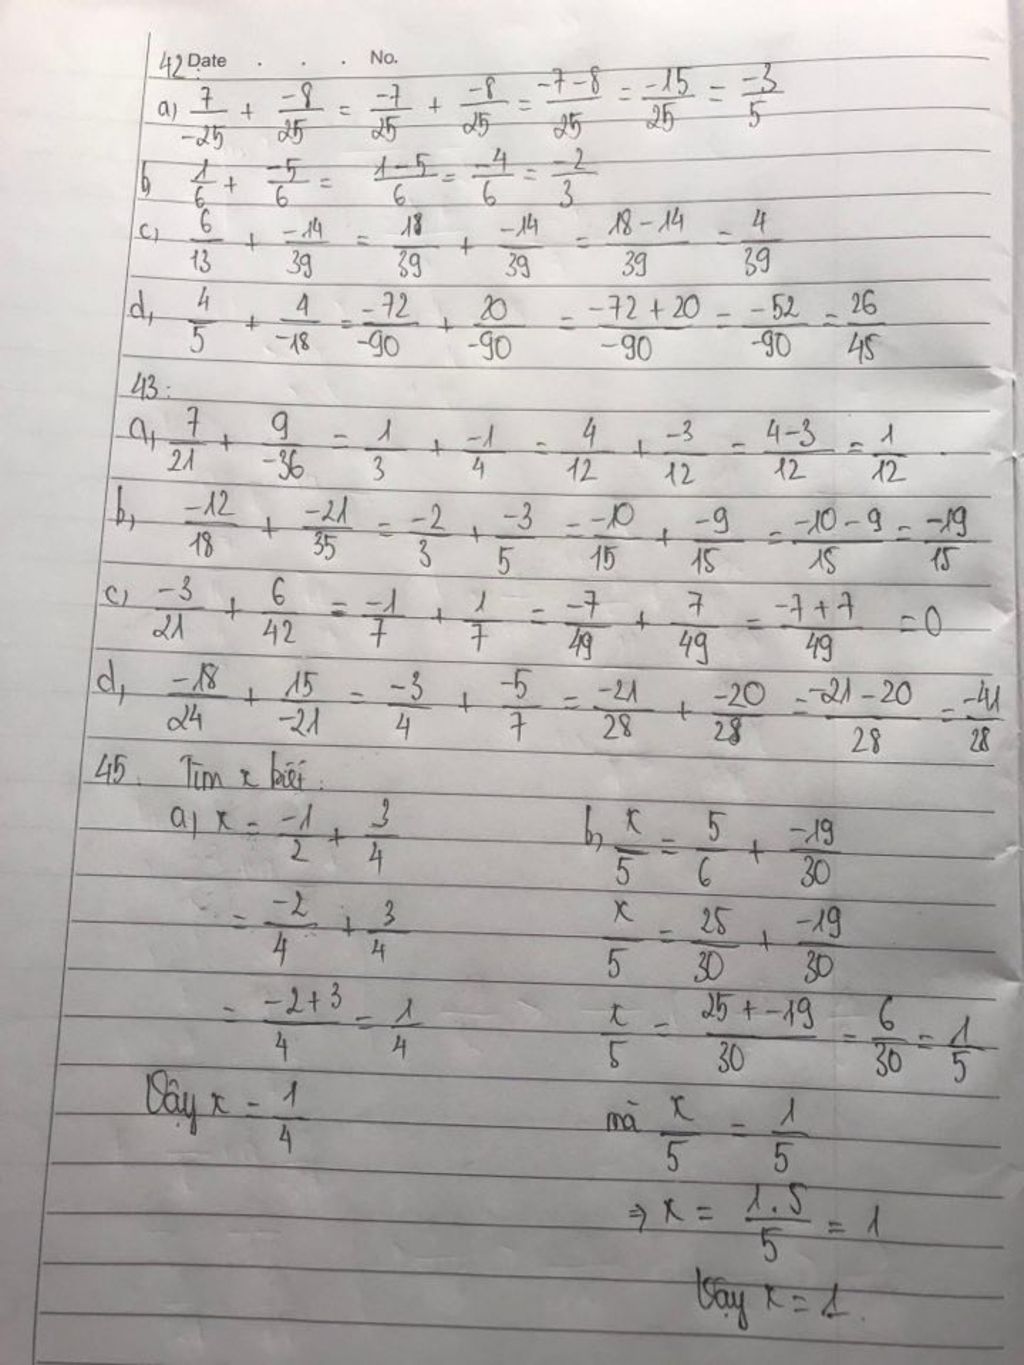 Date . . . No.
42:
a) 7/-25 + -8/25 = -7/25 + -8/25 = -7-8/25 = -15/25 = -3/5
b, 1/6 + -5/6 = 1-5/6 = -4/6 = -2/3
c, 6/13 + -14/39 = 18/39 + -14/39 = 18-14/39 = 4/39
d, 4/5 + 1/-18 = -72/-90 + 20/-90 = -72+20/-90 = -52/-90 = 26/45
43:
a, 7/21 + 9/-36 = 1/3 + -1/4 = 4/12 + -3/12 = 4-3/12 = 1/12 .
b, -12/18 + -21/35 = -2/3 + -3/5 = -10/15 + -9/15 = -10-9/15 = -19/15
c, -3/21 + 6/42 = -1/7 + 1/7 = -7/49 + 7/49 = -7+7/49 = 0
d, -18/24 + 15/-21 = -3/4 + -5/7 = -21/28 + -20/28 = -21-20/28 = -41/28
45. Tìm x biết:
a, x = -1/2 + 3/4
= -2/4 + 3/4
= -2+3/4 = 1/4
Vậy x = 1/4
b, x/5 = 5/6 + -19/30
x/5 = 25/30 + -19/30
x/5 = 25+-19/30 = 6/30 = 1/5
mà x/5 = 1/5
⇒ x = 1.5/5 = 1
Vậy x = 1.